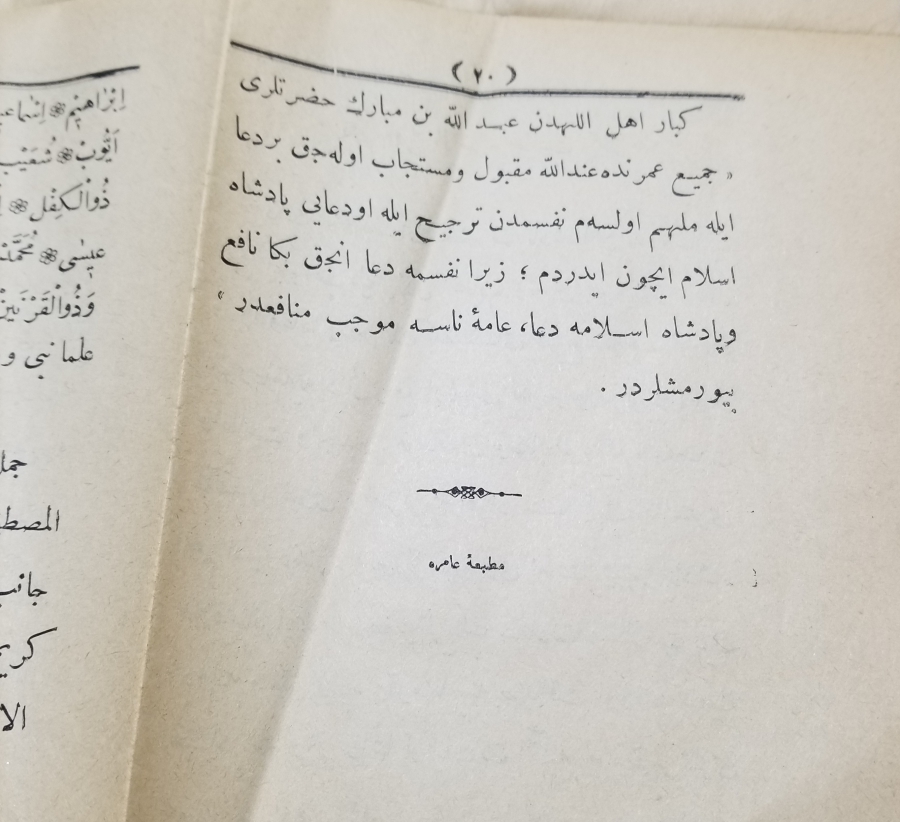 ( ٢٠ )
كبار اهل اللهدن عبد الله بن مبارك حضرتلرى
« جميع عمرنده عندالله مقبول ومستجاب اوله‌جق بر دعا
ايله ملهم اولسه‌م نفسمدن ترجيح ايله او دعايى پادشاه
اسلام ايچون ايدردم ؛ زيرا نفسمه دعا انجق بكا نافع
وپادشاه اسلامه دعا، عامهٔ ناسه موجب منافعدر »
بيورمشلردر .
مطبعهٔ عامره
اِبْرَاهِيْم
اَيُّوبْ شُعَيْب
ذُوالْكِفْل
عِيسٰى مُحَمَّد
وَذُوالْقَرْنَيْن
علما نبى و
جمل
المصط
جانب
كريم
الا